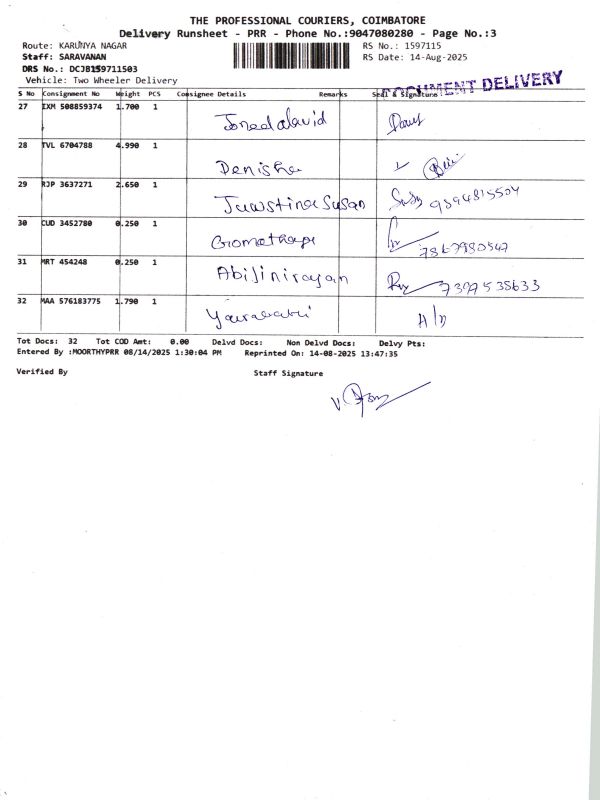 THE PROFESSIONAL COURIERS, COIMBATORE
Delivery Runsheet - PRR - Phone No.:9047080280 - Page No.:3
Route: KARUNYA NAGAR RS No.: 1597115
Staff: SARAVANAN RS Date: 14-Aug-2025
DRS No.: DCJB159711503
Vehicle: Two Wheeler Delivery
DOCUMENT DELIVERY
S No Consignment No Weight PCS Consignee Details Remarks Seal & Signature
27 IXM 508859374 1.700 1
28 TVL 6704788 4.990 1
Denisha
29 RJP 3637271 2.650 1
Jawstina Susan 9894815504
30 CUD 3452780 0.250 1
7867980547
31 MRT 454248 0.250 1
Abijinirayan
32 MAA 576183775 1.790 1
Tot Docs: 32 Tot COD Amt: 0.00 Delvd Docs: Non Delvd Docs: Delvy Pts:
Entered By :MOORTHYPRR 08/14/2025 1:30:04 PM Reprinted On: 14-08-2025 13:47:35
Verified By Staff Signature